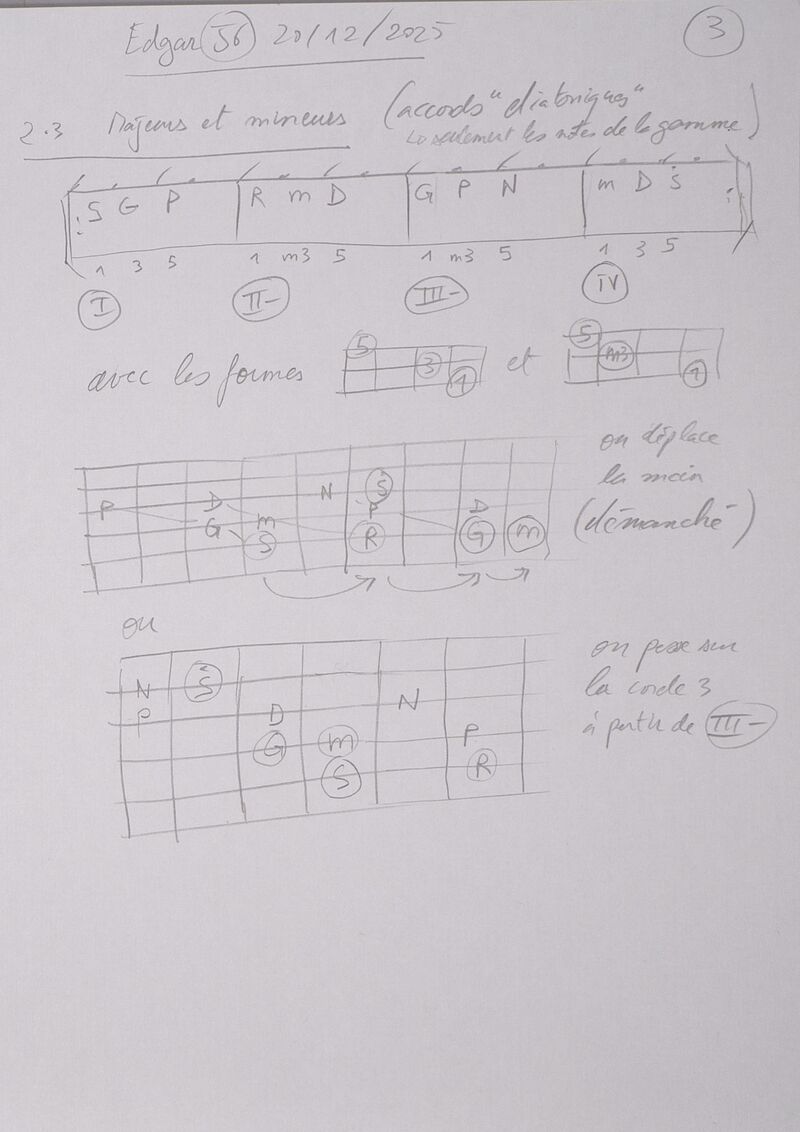 Edgar 56 20/12/2025 3
2.3 Majeurs et mineurs (accords "diatoniques"
↳ seulement les notes de la gamme)
S G P R m D G P N m D Ṡ
1 3 5 1 m3 5 1 m3 5 1 3 5
I II- III- IV
avec les formes 5 3 1 et 5 m3 1
on déplace
la main
(démanché)
N S
P D P D
G m
S R G m
ou
on passe sur
la corde 3
à partir de III-
N S
P D N
G m P
S R